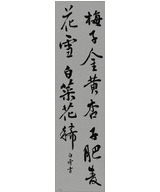 梅子金黄杏子肥麦
花雪白菜花稀